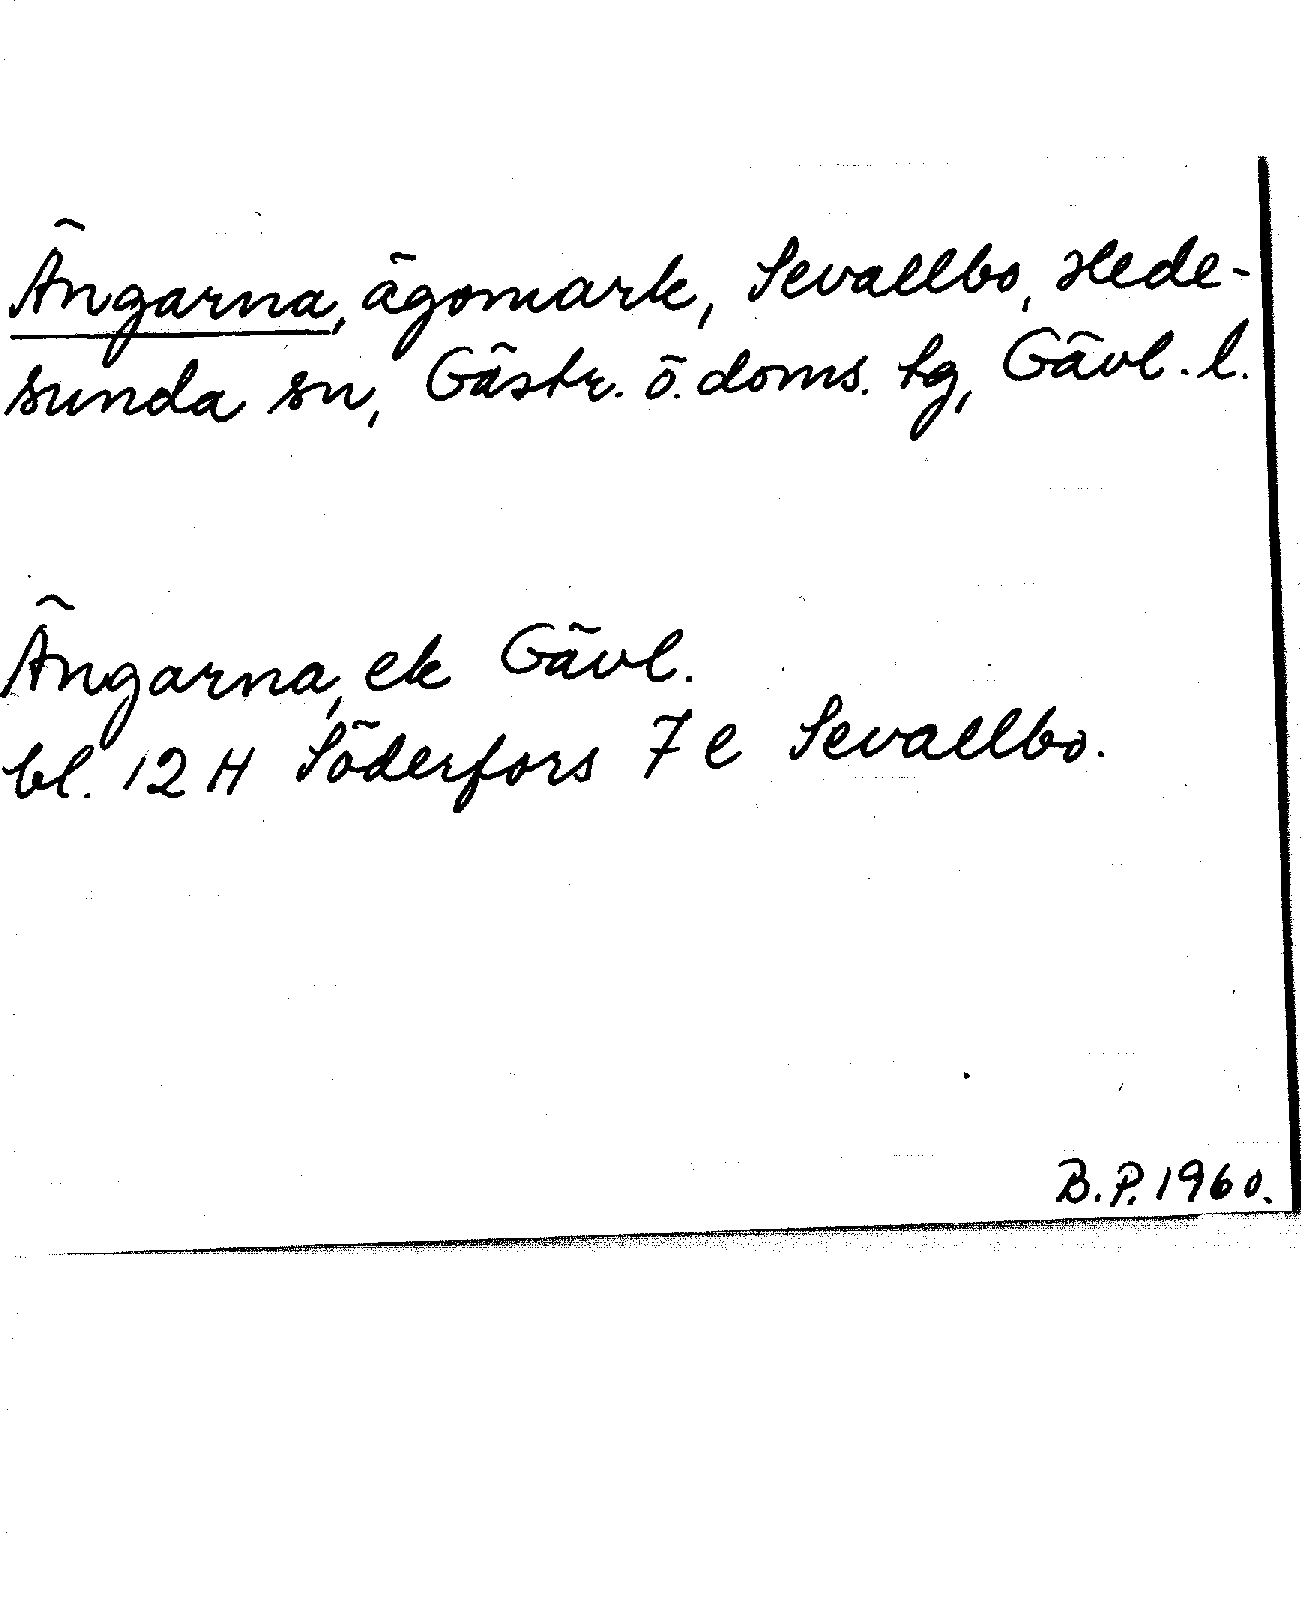 Ängarna, ägomark, Sevallbo, Hede-
sunda sn, Gästr. ö. doms. tg, Gävl. l.
Ängarna, ek Gävl.
bl. 12 H Söderfors 7 e Sevallbo.
B.P. 1960.